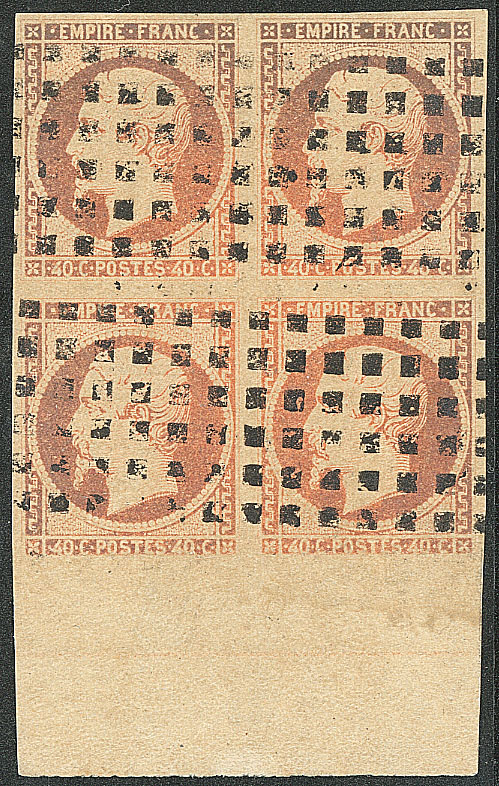 · EMPIRE · FRANC · · EMPIRE · FRANC ·
40 · C · POSTES · 40 · C · 40 · C · POSTES · 40 · C ·
EMPIRE · FRANC · EMPIRE · FRANC ·
40 · C · POSTES · 40 · C · 40 · C · POSTES · 40 · C ·